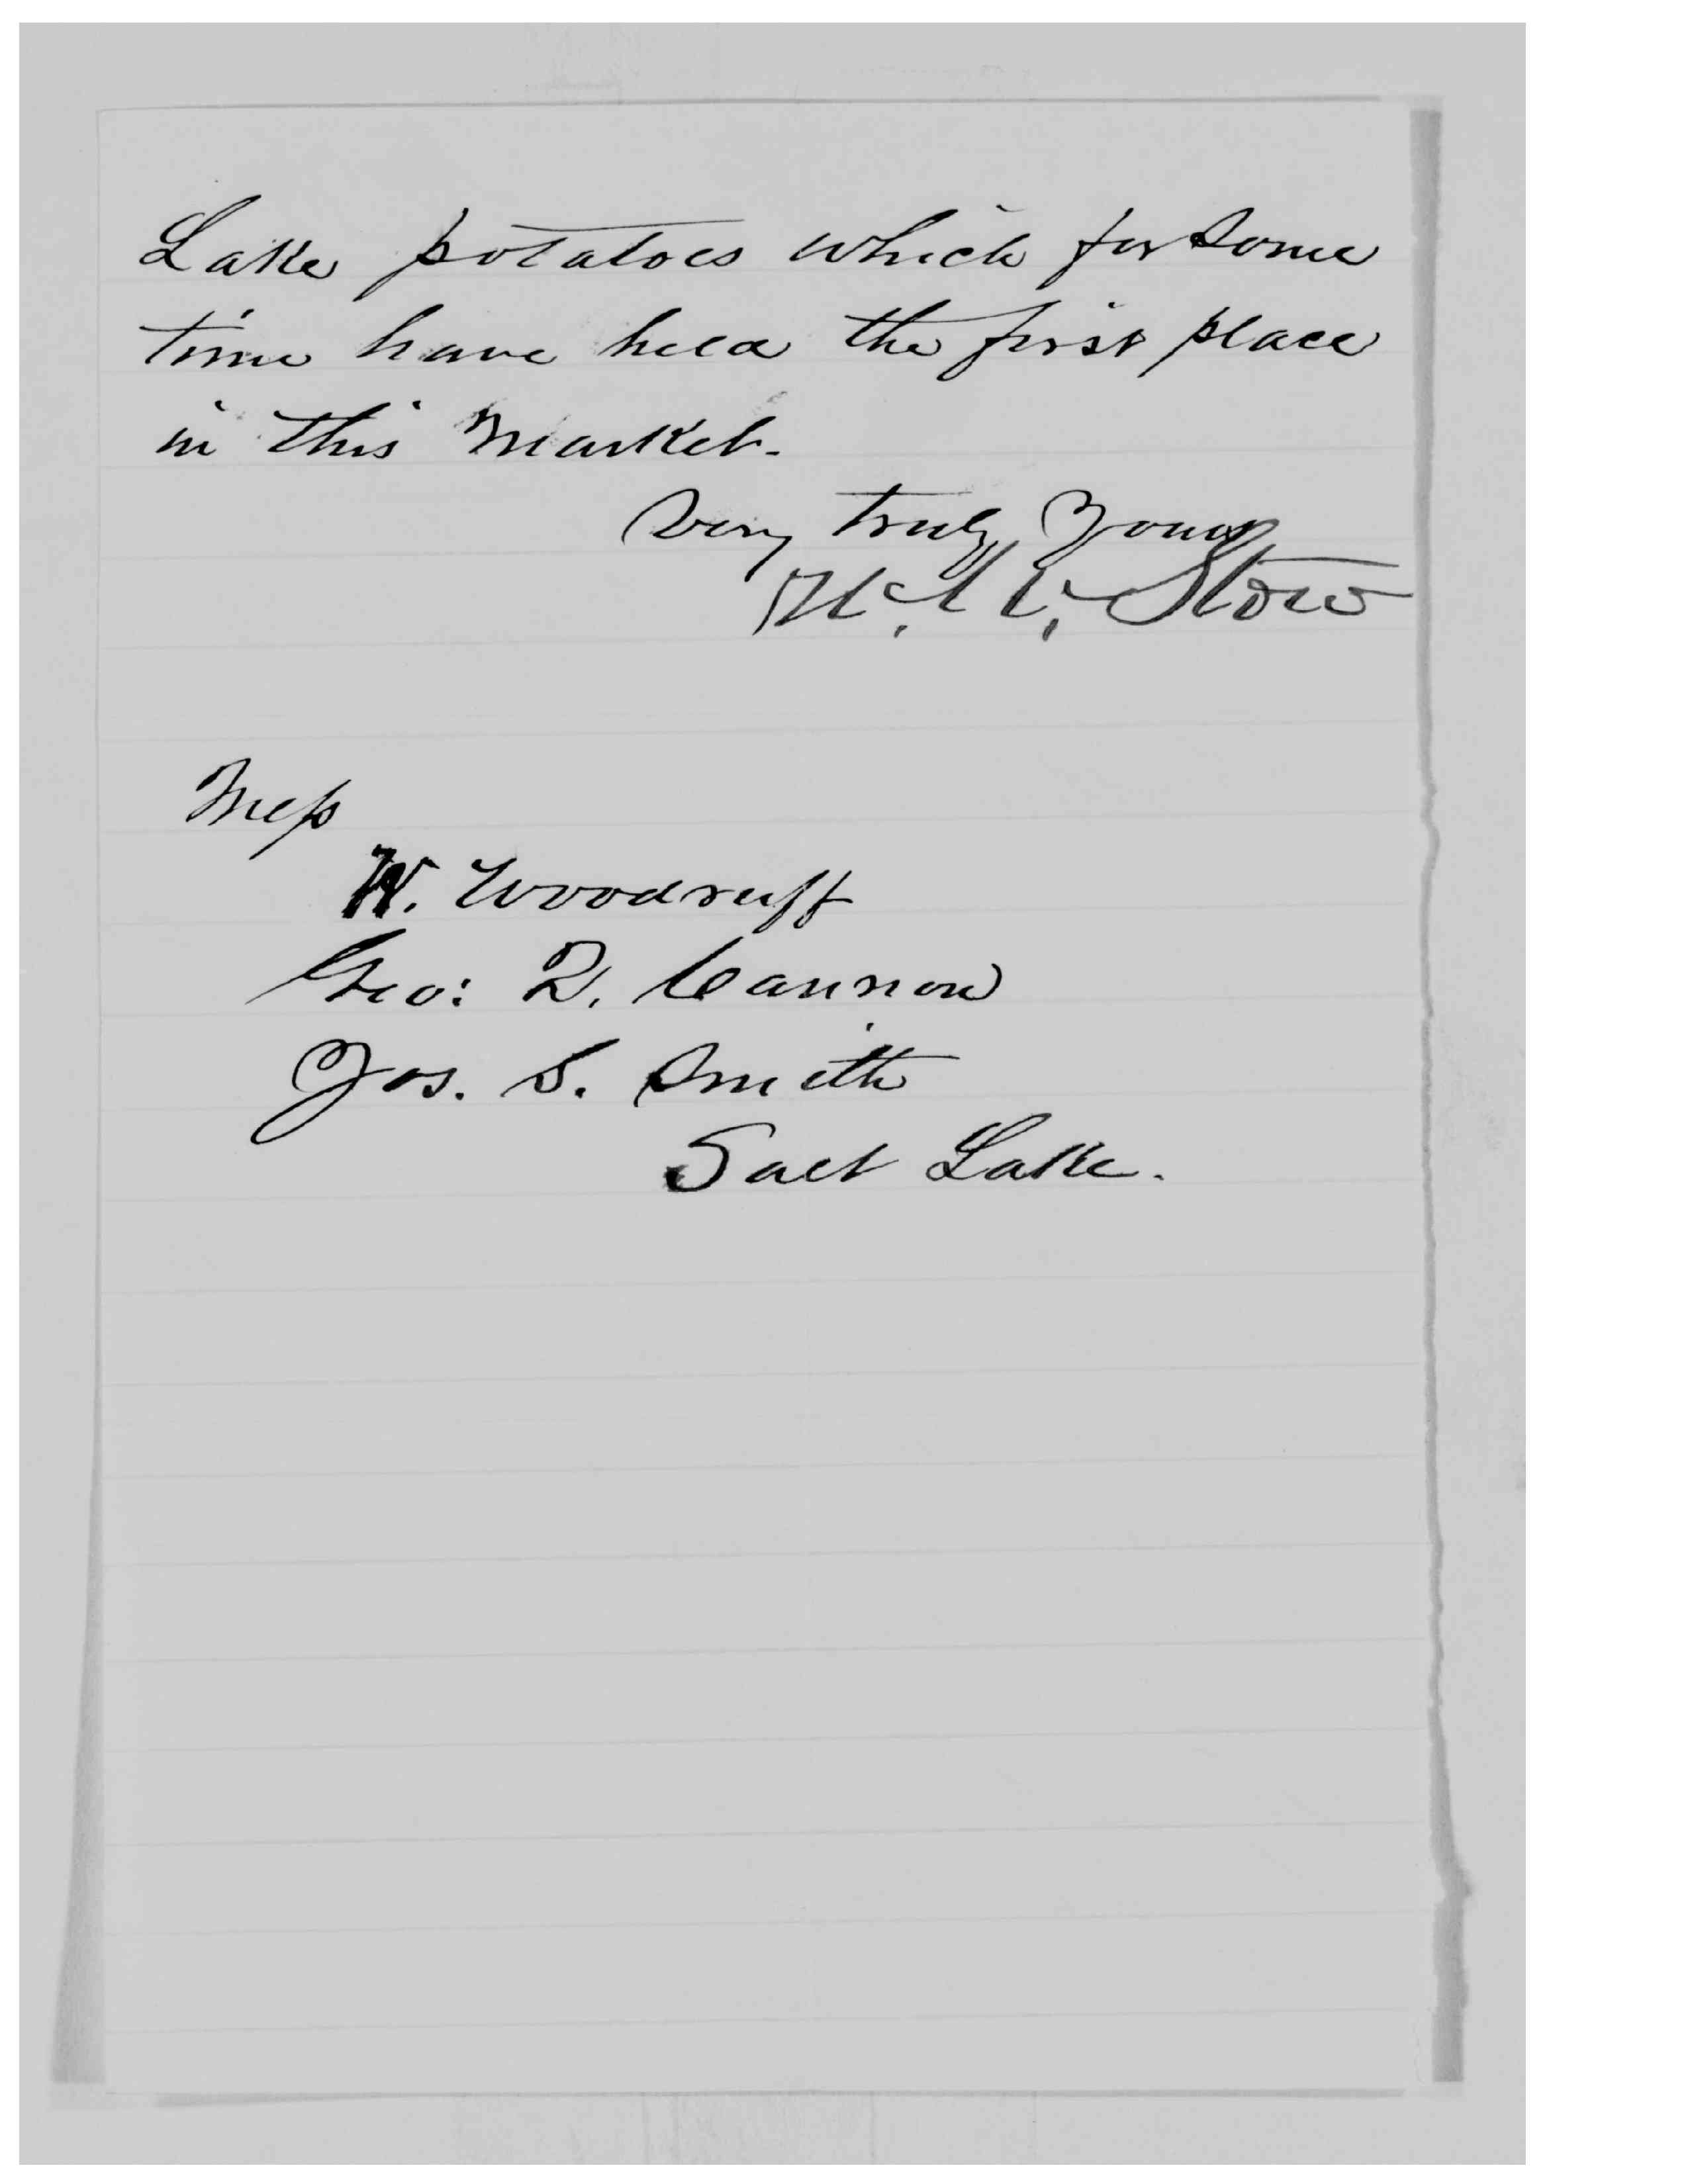 Lake potatoes which for some
time have held the first place
in this market.
Very truly Yours
W. W. Stow
Mess
W. Woodruff
Geo: Q. Cannon
Jos. S. Smith
Salt Lake.